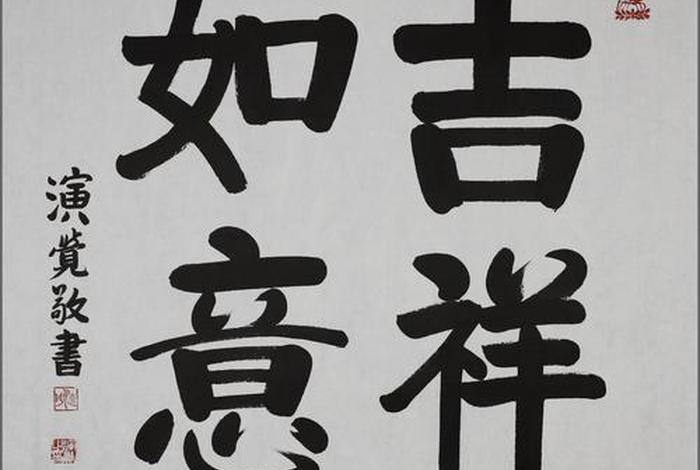 吉祥
如意
演覺敬書